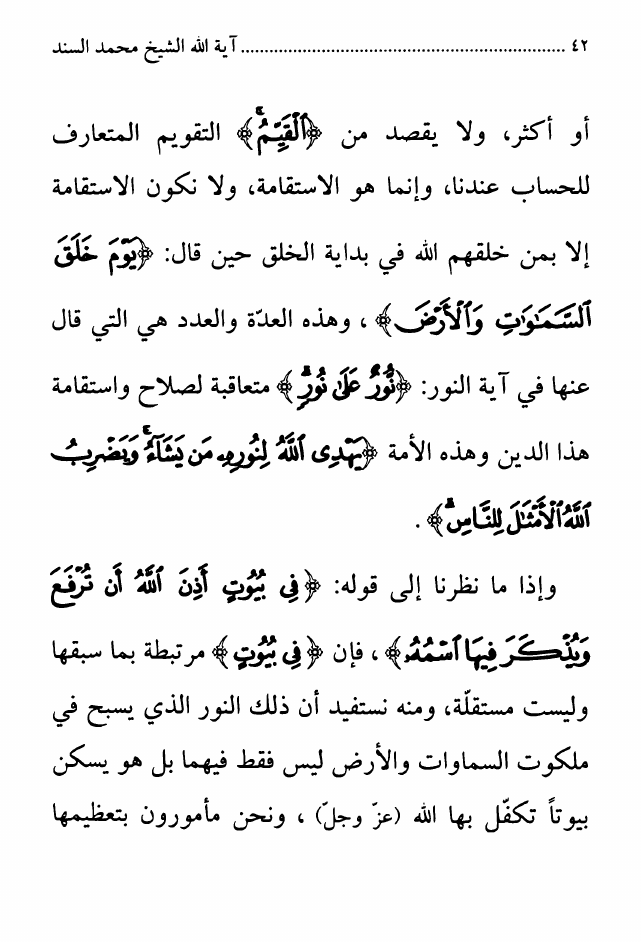 ٤٢ ........................................................................ آية الله الشيخ محمد السند
أو أكثر، ولا يقصد من ﴿ٱلْقَيِّمُ ۚ﴾ التقويم المتعارف
للحساب عندنا، وإنما هو الاستقامة، ولا نكون الاستقامة
إلا بمن خلقهم الله في بداية الخلق حين قال: ﴿يَوْمَ خَلَقَ
ٱلسَّمَـٰوَٰتِ وَٱلْأَرْضَ﴾ ، وهذه العدّة والعدد هي التي قال
عنها في آية النور: ﴿نُّورٌ عَلَىٰ نُورٍ ۗ﴾ متعاقبة لصلاح واستقامة
هذا الدين وهذه الأمة ﴿يَهْدِى ٱللَّهُ لِنُورِهِۦ مَن يَشَآءُ ۚ وَيَضْرِبُ
ٱللَّهُ ٱلْأَمْثَـٰلَ لِلنَّاسِ ۗ﴾ .
وإذا ما نظرنا إلى قوله: ﴿فِى بُيُوتٍ أَذِنَ ٱللَّهُ أَن تُرْفَعَ
وَيُذْكَرَ فِيهَا ٱسْمُهُۥ﴾ ، فإن ﴿فِى بُيُوتٍ﴾ مرتبطة بما سبقها
وليست مستقلّة، ومنه نستفيد أن ذلك النور الذي يسبح في
ملكوت السماوات والأرض ليس فقط فيهما بل هو يسكن
بيوتاً تكفّل بها الله (عزّ وجلّ) ، ونحن مأمورون بتعظيمها